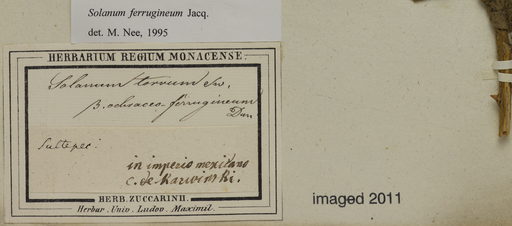 Solanum ferrugineum Jacq.
det. M. Nee, 1995
HERBARIUM REGIUM MONACENSE.
Solanum torvum Sw.
β. ochraceo-ferrugineum
Dun.
Sultepec.
in imperio mexicano
C. de Karwinski.
HERB. ZUCCARINII.
Herbar. Univ. Ludov. Maximil.
imaged 2011